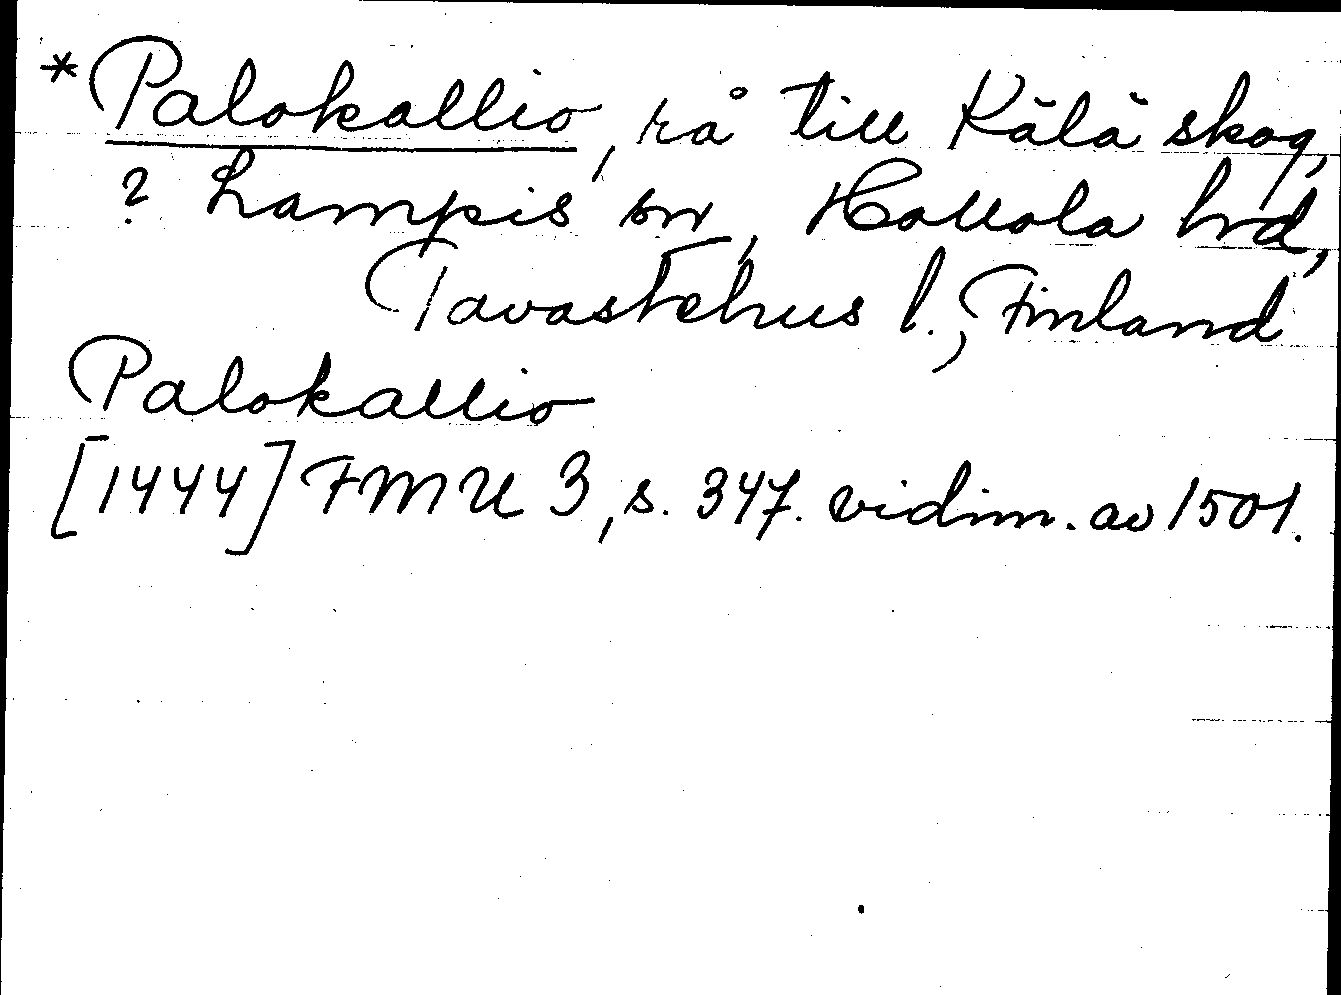 *Palokallio, rå till Kälä skog,
? Lampis sn, Hollola hd,
Tavastehus l., Finland
Palokallio
[1444] FMU 3, s. 347. vidim. av 1501.